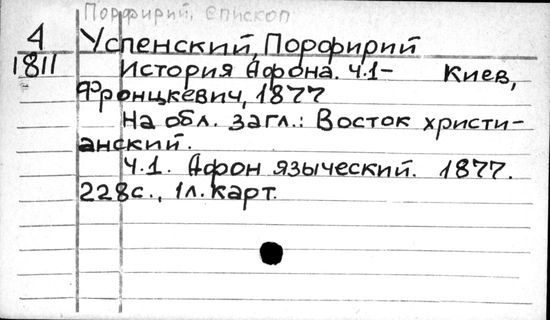 Порфирий, епископ
4 Успенский, Порфирий
1811 История Афона. Ч.1- Киев,
Фронцкевич, 1877
На обл. загл.: Восток христи-
анский.
Ч.1. Афон языческий. 1877.
228с., 1л. карт.